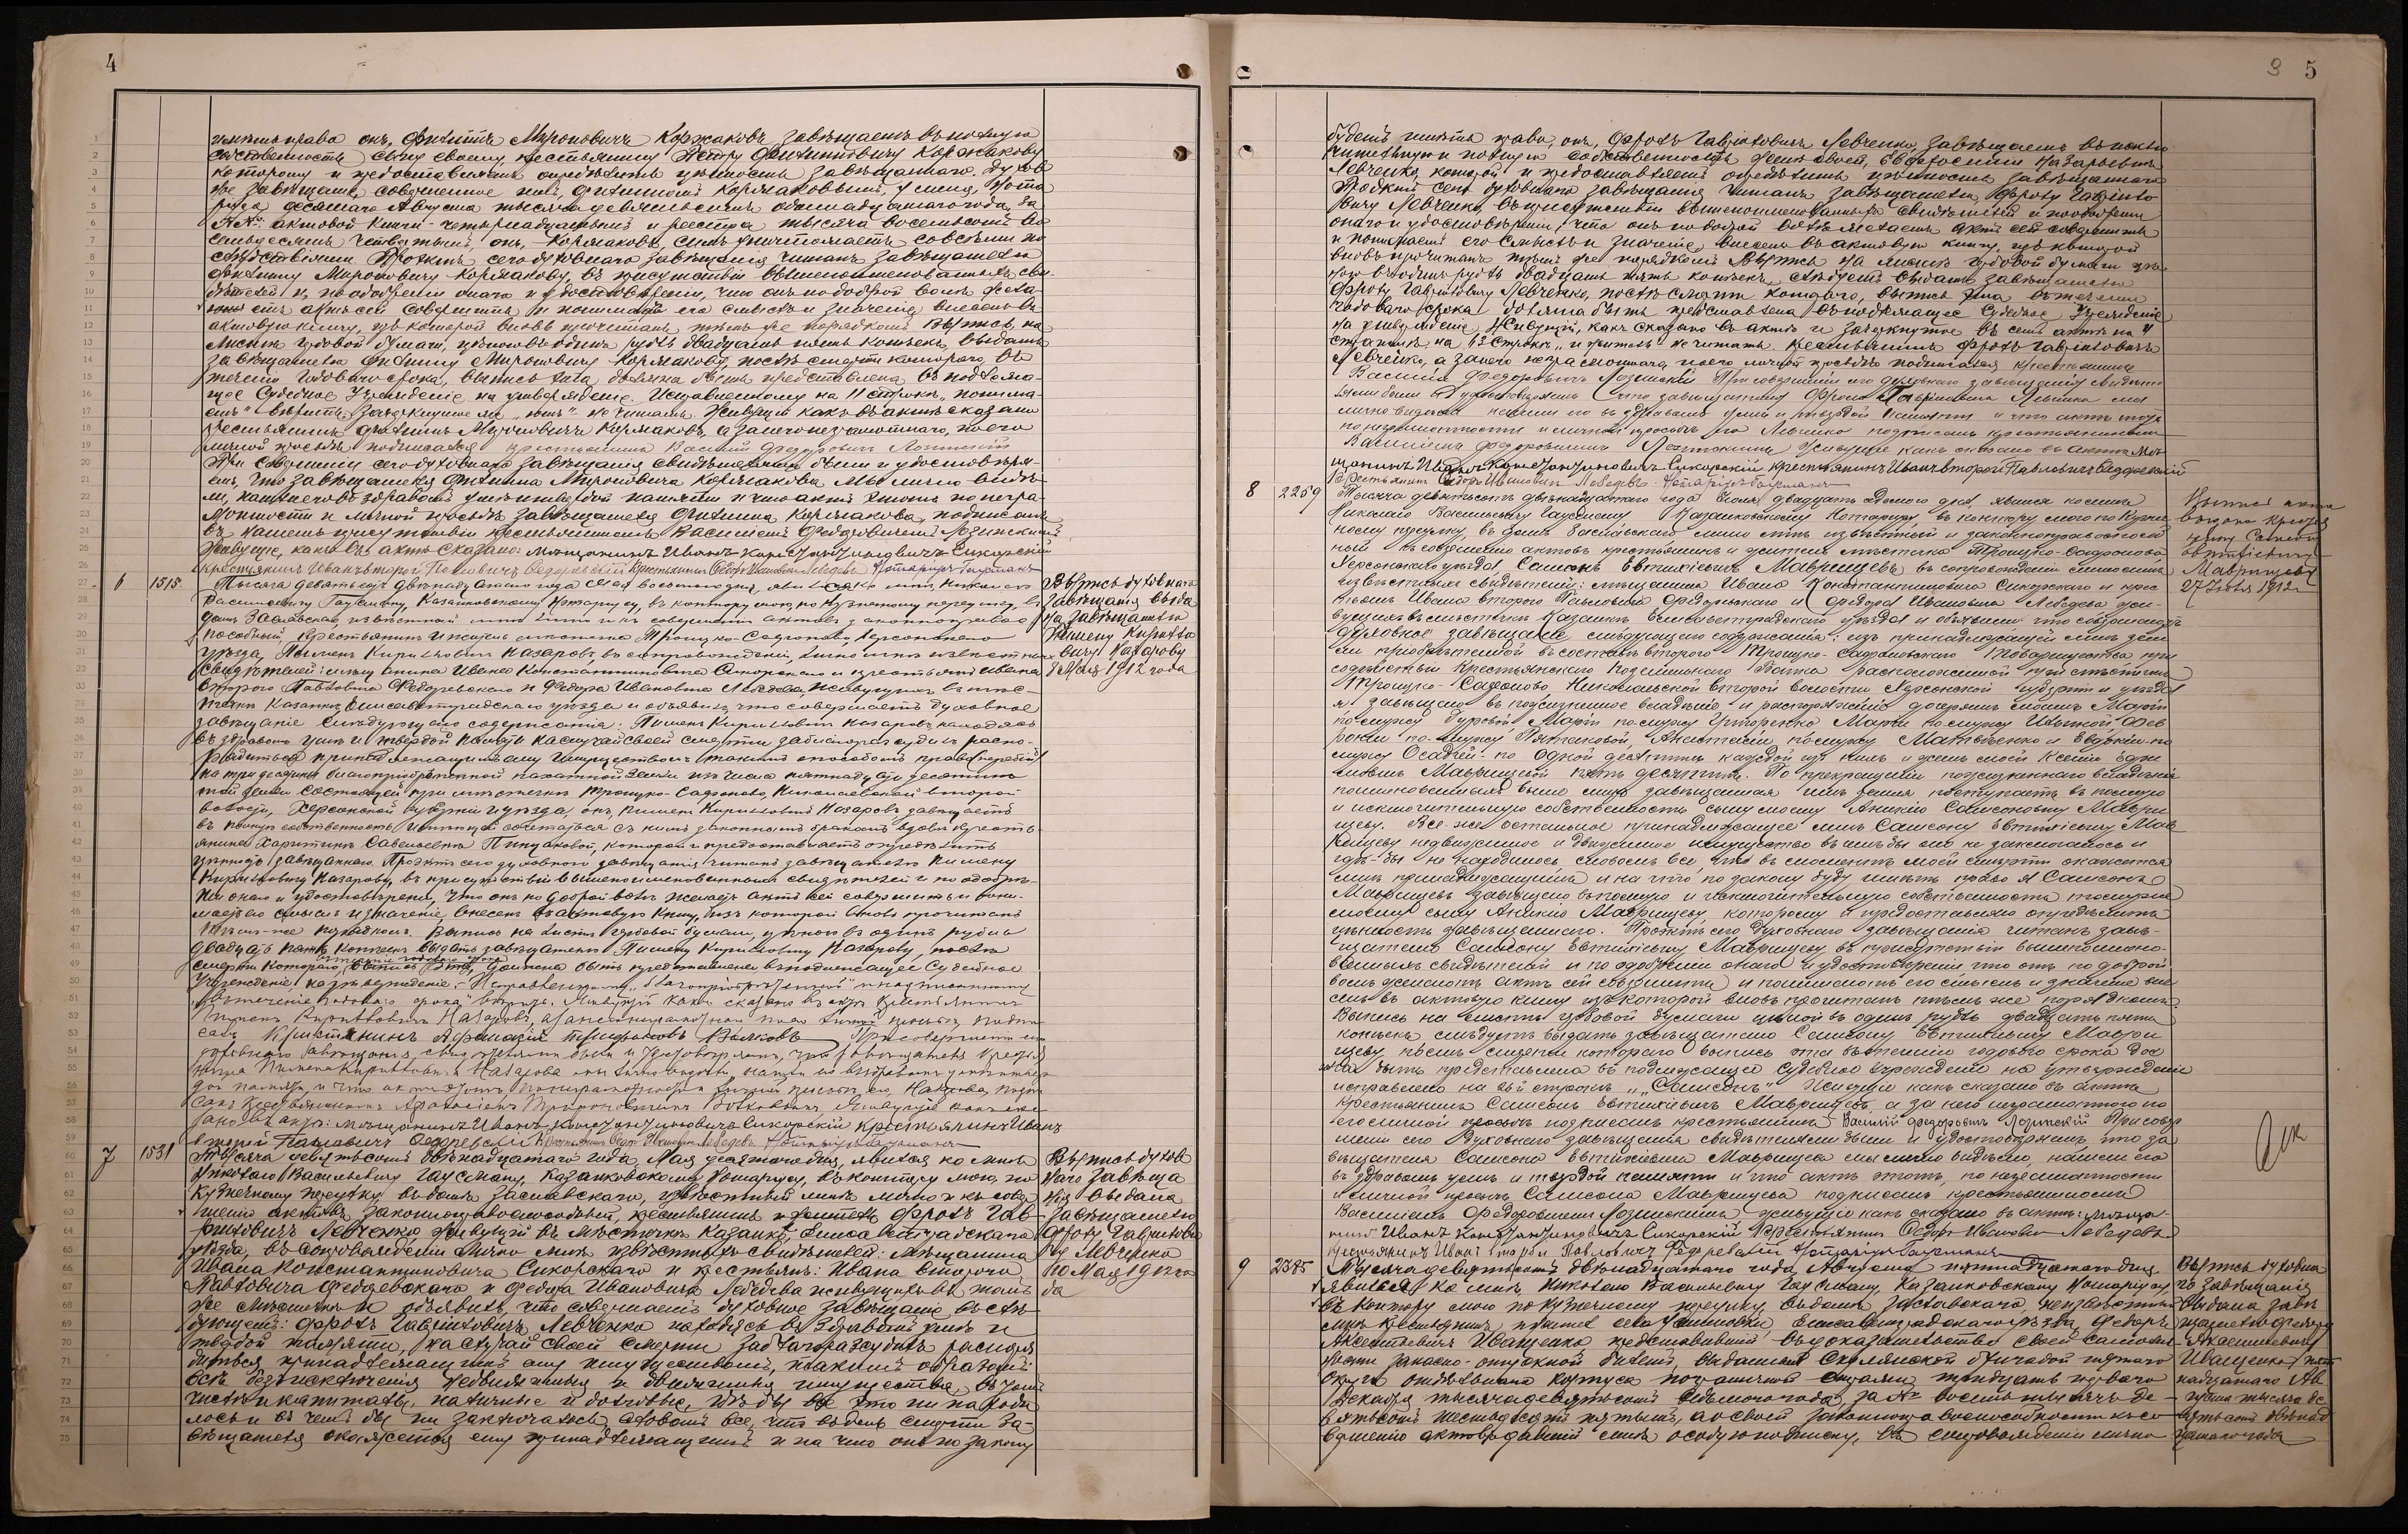 4
права онъ, Филиппъ Мироновичъ Коржаковъ завѣщаетъ въ полную
собственность сыну своему, крестьянину Петру Филипповичу Коржакову
которому и предоставляетъ опредѣлить цѣнность завѣщаннаго. Духов
ное завѣщаніе, совершенное имъ, Филиппомъ Коржаковымъ, у меня, Нота
ріуса десятаго Августа тысяча девятьсотъ одиннадцатаго года, за
№№: актовой книги - четырнадцатымъ и реестра тысяча восемьсотъ
семьдесятъ четвертымъ, онъ, Коржаковъ, симъ уничтожаетъ со всѣми по
слѣдствіями. Проектъ сего духовнаго завѣщанія читанъ завѣщателю
Филиппу Мироновичу Коржакову, въ присутствіи вышепоименованныхъ сви-
дѣтелей и, по одобреніи онаго и удостовѣреніи, что онъ по доброй волѣ жела-
етъ актъ сей совершить и понимаетъ его смыслъ и значеніе, внесенъ въ
актовую книгу, изъ которой вновь прочитанъ тѣмъ же порядкомъ. Выпись на
листѣ гербовой бумаги, цѣною въ одинъ рубль двадцать пять копѣекъ, выдать
завѣщателю Филиппу Мироновичу Коржакову, послѣ смерти котораго, въ
теченіи годоваго срока, выпись эта должна быть представлена въ подлежа-
щее Судебное Учрежденіе на утвержденіе. Исправленному на 11 строкѣ „понима-
етъ" вѣрить, зачеркнутое же не читать. Живущій какъ въ актѣ сказано
крестьянинъ Филиппъ Мироновичъ Коржаковъ, а за него неграмотнаго, по его
личной просьбѣ подписался крестьянинъ Василій Федоровичъ Лозинскій
При совершеніи сего духовнаго завѣщанія свидѣтелями были и удостовѣря-
емъ, что завѣщателя Филиппа Мироновича Коржакова мы лично видѣ-
ли, нашли его въ здравомъ умѣ и твердой памяти и что актъ этотъ по негра-
мотности и личной просьбѣ завѣщателя Филиппа Коржакова, подписанъ
въ нашемъ присутствіи крестьяниномъ Василіемъ Федоровичемъ Лозинскимъ
Живущіе, какъ въ актѣ сказано: мѣщанинъ Иванъ Константиновичъ Сикорскій
крестьянинъ Иванъ второй Павловичъ Федоревскій Крестьянинъ Федоръ Ивановичъ Лебедевъ Нотаріусъ Гаусманъ
6 1515. Тысяча девятьсотъ двѣнадцатаго года Мая восьмого дня, явился ко мнѣ, Николаю
Васильевичу Гаусману, Казанковскому Нотаріусу, въ контору мою, по Кузнечному переулку, въ
домѣ Заславскаго, извѣстный мнѣ лично и къ совершенію актовъ законноправо
способный крестьянинъ и житель мѣстечка Троицко-Сафоново, Херсонскаго
уѣзда, Пименъ Кирилловичъ Назаровъ, въ сопровожденіи, лично мнѣ извѣстныхъ
свидѣтелей: мѣщанина Ивана Константиновича Сикорскаго и крестьянъ Ивана
второго Павловича Федоревскаго и Федора Ивановича Лебедева, живущихъ въ мѣс-
течкѣ Казанкѣ, Елисаветградскаго уѣзда и объявилъ, что совершаетъ духовное
завѣщаніе слѣдующаго содержанія: Пименъ Кирилловичъ Назаровъ находясь
въ здравомъ умѣ и твердой памяти на случай своей смерти заблагоразсудилъ распо-
рядиться принадлежащимъ ему имуществомъ такимъ способомъ:
на три десятины благопріобрѣтенной пахатной земли изъ числа пятнадцати десятинъ
той земли состоящей при мѣстечкѣ Троицко-Сафоново, Николаевской второй
волости, Херсонской губерніи и уѣзда, онъ, Пименъ Кирилловичъ Назаровъ, завѣщаетъ
въ полную собственность имѣющей сочетаться съ нимъ законнымъ бракомъ вдовѣ кресть-
янина Харитинѣ Савельевнѣ Пищаковой, которой и предоставляетъ опредѣлить
цѣнность завѣщаннаго. Проэктъ сего духовнаго завѣщанія читанъ завѣщателю Пимену
Кирилловичу Назарову, въ присутствіи вышепоименованныхъ свидѣтелей и по одобре-
ніи онаго и удостовѣреніи, что онъ по доброй волѣ желаетъ актъ сей совершить и пони-
маетъ его смыслъ и значеніе, внесенъ въ актовую книгу, изъ которой вновь прочитанъ
тѣмъ-же порядкомъ. Выпись на листѣ гербовой бумаги, цѣною въ одинъ рубль
двадцать пять копѣекъ выдать завѣщателю Пимену Кирилловичу Назарову, послѣ
въ теченіе годоваго срока
смерти котораго, выпись эта, должна быть представлена въ подлежащее Судебное
Учрежденіе на утвержденіе. Исправленному „благопріобрѣтенной" и надписанному
„въ теченіе годоваго срока" вѣрить. Живущій какъ сказано въ актѣ крестьянинъ
Пименъ Кирилловичъ Назаровъ, а за него неграмотнаго по его личной просьбѣ, подпи
салъ Крестьянинъ Афанасій Трифоновъ Волковъ При совершеніи сего
духовнаго завѣщанія, свидѣтелями были и удостовѣряемъ, что завѣщателя крестья
нина Пимена Кирилловича Назарова мы лично видѣли, нашли въ здравомъ умѣ и твер
дой памяти, и что актъ этотъ, по неграмотности и личной просьбѣ его, Назарова, подпи
санъ крестьяниномъ Афанасіемъ Трифоновичемъ Волковымъ, Живущіе какъ ска
зано въ актѣ: мѣщанинъ Иванъ Константиновичъ Сикорскій крестьянинъ Иванъ
второй Павловичъ Федоревскій Крестьянинъ Федоръ Ивановичъ Лебедевъ Нотаріусъ Гаусманъ
Выпись духовнаго
завѣщанія выда
на завѣщателю
Пимену Кирилло
вичу Назарову
8 Мая 1912 года
7 1531 Тысяча девятьсотъ двѣнадцатаго года, Мая десятаго дня, явился ко мнѣ
Николаю Васильевичу Гаусману, Казанковскому Нотаріусу, въ контору мою, по
Кузнечному переулку, въ домѣ Заславскаго, извѣстный мнѣ лично и къ совер
шенію актовъ законноправоспособный, крестьянинъ и житель Фролъ Гав-
риловичъ Левченко, живущій въ мѣстечкѣ Казанкѣ, Елисаветградскаго
уѣзда, въ сопровожденіи лично мнѣ извѣстныхъ свидѣтелей: мѣщанина
Ивана Константиновича Сикорскаго и крестьянъ: Ивана второго
Павловича Федоревскаго и Федора Ивановича Лебедева живущихъ въ томъ
же мѣстечкѣ и объявилъ, что совершаетъ духовное завѣщаніе въ слѣ-
дующемъ: Фролъ Гавриловичъ Левченко находясь въ здравомъ умѣ и
твердой памяти, на случай своей смерти заблагоразсудилъ распоря
диться, принадлежащимъ ему имуществомъ, такимъ образомъ:
всѣ безъ исключенія недвижимыя и движимыя имущества, въ томъ
числѣ и капиталы, наличные и долговые, гдѣ бы все это ни находи
лось и въ чемъ бы ни заключалось, словомъ все, что въ день смерти за-
вѣщателя окажется ему принадлежащимъ и на что онъ по закону
Выпись духов
наго завѣща
нія выдана
завѣщателю
Фролу Гаврилови
чу Левченко
10 Мая 1912 го
да
9 5
будетъ имѣть право, онъ, Фролъ Гавриловичъ Левченко, завѣщаетъ въ исклю
чительную и полную собственность женѣ своей, Евфросиніи Назарьевнѣ
Левченко, которой и предоставляетъ опредѣлить цѣнность завѣщаннаго
Проэктъ сего духовнаго завѣщанія читанъ завѣщателю, Фролу Гаврило
вичу Левченко, въ присутствіи вышепоименованныхъ свидѣтелей и по одобреніи
онаго и удостовѣреніи, что онъ по доброй волѣ желаетъ актъ сей совершить
и понимаетъ его смыслъ и значеніе, внесенъ въ актовую книгу, изъ которой
вновь прочитанъ тѣмъ же порядкомъ. Выпись на листѣ гербовой бумаги цѣ-
ною въ одинъ рубль двадцать пять копѣекъ, слѣдуетъ выдать завѣщателю
Фролу Гавриловичу Левченко, послѣ смерти котораго, выпись эта въ теченіи
годоваго срока должна быть представлена въ подлежащее Судебное Учрежденіе
на утвержденіе. Живущій, какъ сказано въ актѣ и зачеркнутое въ семъ актѣ на 4
страницѣ на 63 строкѣ „и житель" не читать. Крестьянинъ Фролъ Гавриловичъ
Левченко, а за него неграмотнаго, по его личной просьбѣ подписался крестьянинъ
Василій Федоровичъ Лозинскій При совершеніи сего духовнаго завѣщанія свидѣте
лями были и удостовѣряемъ что завѣщателя Фрола Гавриловича Левченка мы
лично видѣли нашли его въ здравомъ умѣ и твердой памяти и что актъ этотъ
по неграмотности и личной просьбѣ его Левченко подписанъ крестьяниномъ
Василіемъ Федоровичемъ Лозинскимъ Живущіе какъ сказано въ актѣ Мѣ-
щанинъ Иванъ Константиновичъ Сикорскій крестьянинъ Иванъ второй Павловичъ Федоревскій
Крестьянинъ Федоръ Ивановичъ Лебедевъ. Нотаріусъ Гаусманъ
8 2259 Тысяча девятьсотъ двѣнадцатаго года Іюля двадцать седьмого дня, явился ко мнѣ
Николаю Васильевичу Гаусману Казанковскому Нотаріусу, въ контору мою по Кузнеч
ному переулку, въ домѣ Заславскаго лично мнѣ извѣстный и законноправоспособ
ный къ совершенію актовъ крестьянинъ и житель мѣстечка Троицко-Сафоново
Херсонскаго уѣзда Самсонъ Евтихіевичъ Маврищевъ въ сопровожденіи лично мнѣ
извѣстныхъ свидѣтелей: мѣщанина Ивана Константиновича Сикорскаго и крес
тьянъ Ивана второго Павловича Федоревскаго и Федора Ивановича Лебедева жи-
вущихъ въ мѣстечкѣ Казанкѣ Елисаветградскаго уѣзда и объявилъ что совершаетъ
духовное завѣщаніе слѣдующаго содержанія: изъ принадлежащей мнѣ зем
ли пріобрѣтенной въ составѣ второго Троицко-Сафоновскаго Товарищества при
содѣйствіи Крестьянскаго Поземельнаго Банка расположенной при мѣстечкѣ
Троицко-Сафоново, Николаевской второй волости Херсонской губерніи и уѣзда
я завѣщаю въ пожизненное владѣніе и распоряженіе дочерямъ моимъ Марѳѣ
по мужу Буровой, Маріи по мужу Григоренко Маріи по мужу Ивкиной, Фев
роніи по-мужу Пятаковой, Анастасіи по мужу Матвѣенко и Евдокіи-по
мужу Осадчей по одной десятинѣ каждой изъ нихъ и женѣ моей Ксеніи
Маврищевой пять десятинъ. По прекращеніи пожизненнаго владѣнія
поименованными выше лицъ завѣщанная имъ земля поступаетъ въ полную
и исключительную собственность сыну моему Аникію Самсоновичу Маври
щеву. Все же остальное принадлежащее мнѣ Самсону Евтихіевичу Мав
рищеву недвижимое и движимое имущество въ чемъ бы оно не заключалось и
гдѣ-бы не находилось словомъ все, что въ моментъ моей смерти окажется
мнѣ принадлежащимъ и на что по закону буду имѣть право я Самсонъ
Маврищевъ завѣщаю въ полную и исключительную собственность тому же
моему сыну Аникію Маврищеву, которому и предоставляю опредѣлить
цѣнность завѣщаннаго. Проэктъ сего духовнаго завѣщанія читанъ завѣ-
щателю Самсону Евтихіевичу Маврищеву въ присутствіи вышепоимено-
ванныхъ свидѣтелей и по одобреніи онаго и удостовѣреніи что онъ по доброй
волѣ желаетъ актъ сей совершить и понимаетъ его смыслъ и значеніе вне
сенъ въ актовую книгу изъ которой вновь прочитанъ тѣмъ же порядкомъ
Выпись на листѣ гербовой бумаги цѣной въ одинъ рубль двадцать пять
копѣекъ слѣдуетъ выдать завѣщателю Самсону Евтихіевичу Маври
щеву, послѣ смерти котораго выпись эта въ теченіи годового срока дол
жна быть представлена въ подлежащее судебное учрежденіе на утвержденіе
исправлено на строкѣ „Самсонъ" Живущій какъ сказано въ актѣ
крестьянинъ Самсонъ Евтихіевичъ Маврищевъ а за него неграмотнаго по
его личной просьбѣ подписался крестьянинъ Василій Федоровичъ Лозинскій При совер
шеніи сего духовнаго завѣщанія свидѣтелями были и удостовѣряемъ что за
вѣщателя Самсона Евтихіевича Маврищева мы лично видѣли, нашли его
въ здравомъ умѣ и твердой памяти и что актъ этотъ, по неграмотности
и личной просьбѣ Самсона Маврищева подписанъ крестьяниномъ
Василіемъ Федоровичемъ Лозинскимъ Живущіе какъ сказано въ актѣ: мѣща-
нинъ Иванъ Константиновичъ Сикорскій Крестьянинъ Федоръ Ивановичъ Лебедевъ
крестьянинъ Иванъ второй Павловичъ Федоревскій Нотаріусъ Гаусманъ
Выпись акта
выдана крестья
нину Самсону
Евтихіевичу
Маврищеву
27 Іюля 1912 г.
9 2385 Тысяча девятьсотъ двѣнадцатаго года, Августа пятнадцатаго дня
явился ко мнѣ, Николаю Васильевичу Гаусману, Казанковскому Нотаріусу,
въ контору мою по Кузнечному переулку, въ домѣ Заславскаго, неизвѣстный
мнѣ крестьянинъ и житель села Елисаветградскаго уѣзда, Федоръ
Акентіевичъ Иващенко, представившій въ доказательство своей самолич-
ности запасно-отпускной билетъ, выданный бригадой пятаго
округа отдѣльнаго корпуса пограничной стражи тридцать перваго
Декабря тысяча девятьсотъ седьмого года, за № восемь тысячъ де-
вятьсотъ шестьдесятъ пятымъ, а о своей законноправоспособности къ со-
вершенію актовъ давшій мнѣ особую подписку, въ сопровожденіи лично
Выпись духовна
го завѣщанія
выдана завѣ
щателю Федору
Акентіевичу
Иващенко пят
надцатаго Ав
густа тысяча де
вятьсотъ двѣнад
цатаго года